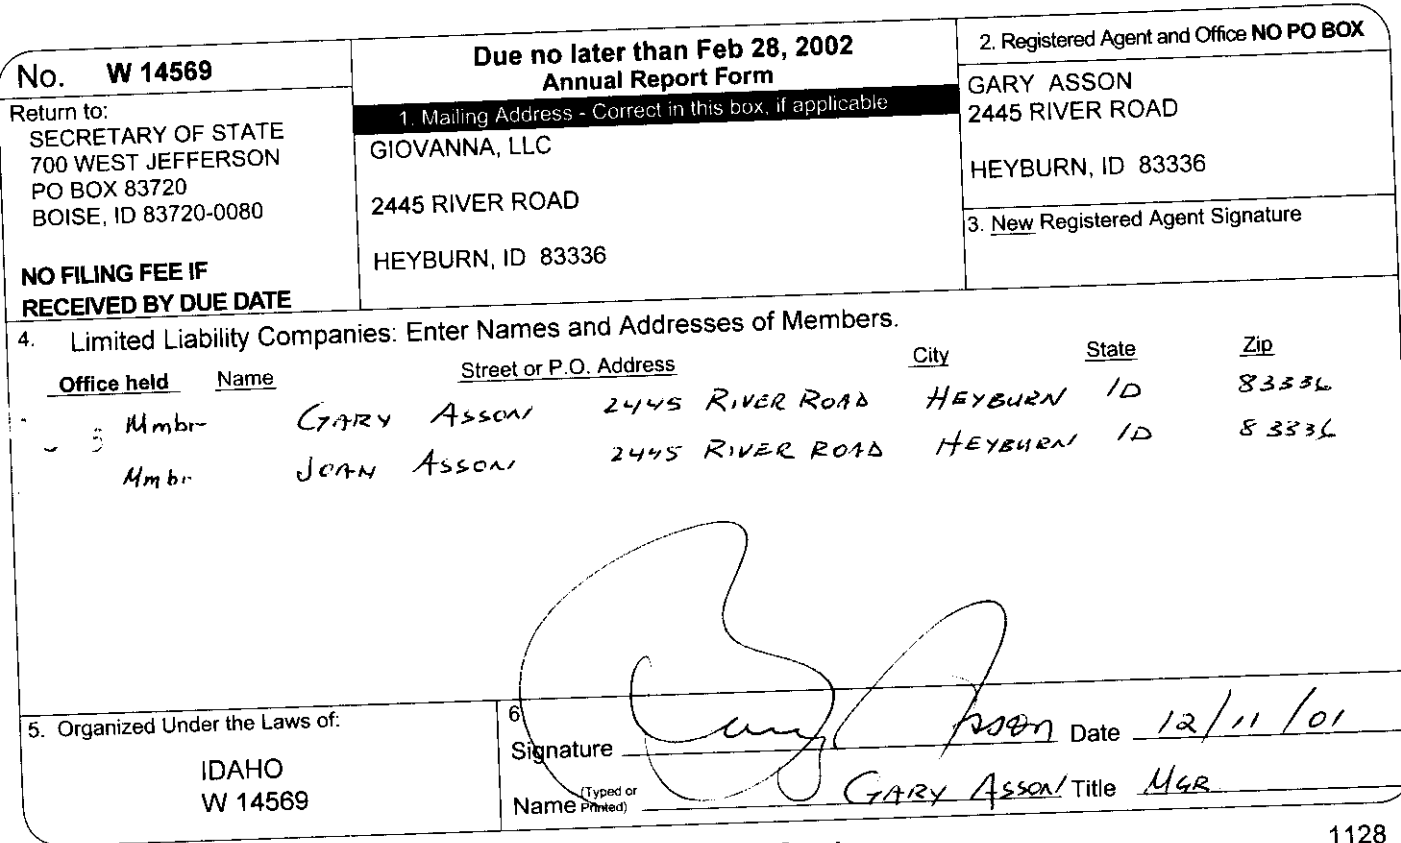 No. W 14569
Return to:
SECRETARY OF STATE
700 WEST JEFFERSON
PO BOX 83720
BOISE, ID 83720-0080
NO FILING FEE IF
RECEIVED BY DUE DATE
Due no later than Feb 28, 2002
Annual Report Form
1. Mailing Address - Correct in this box, if applicable
GIOVANNA, LLC
2445 RIVER ROAD
HEYBURN, ID 83336
2. Registered Agent and Office NO PO BOX
GARY ASSON
2445 RIVER ROAD
HEYBURN, ID 83336
3. New Registered Agent Signature
4. Limited Liability Companies: Enter Names and Addresses of Members.
Office held Name Street or P.O. Address City State Zip
Mmbr GARY ASSON 2445 RIVER ROAD HEYBURN ID 83336
Mmbr JOAN ASSON 2445 RIVER ROAD HEYBURN ID 83336
5. Organized Under the Laws of:
IDAHO
W 14569
6
Signature Gary Asson Date 12/11/01
Name (Typed or Printed) GARY ASSON Title MGR
1128